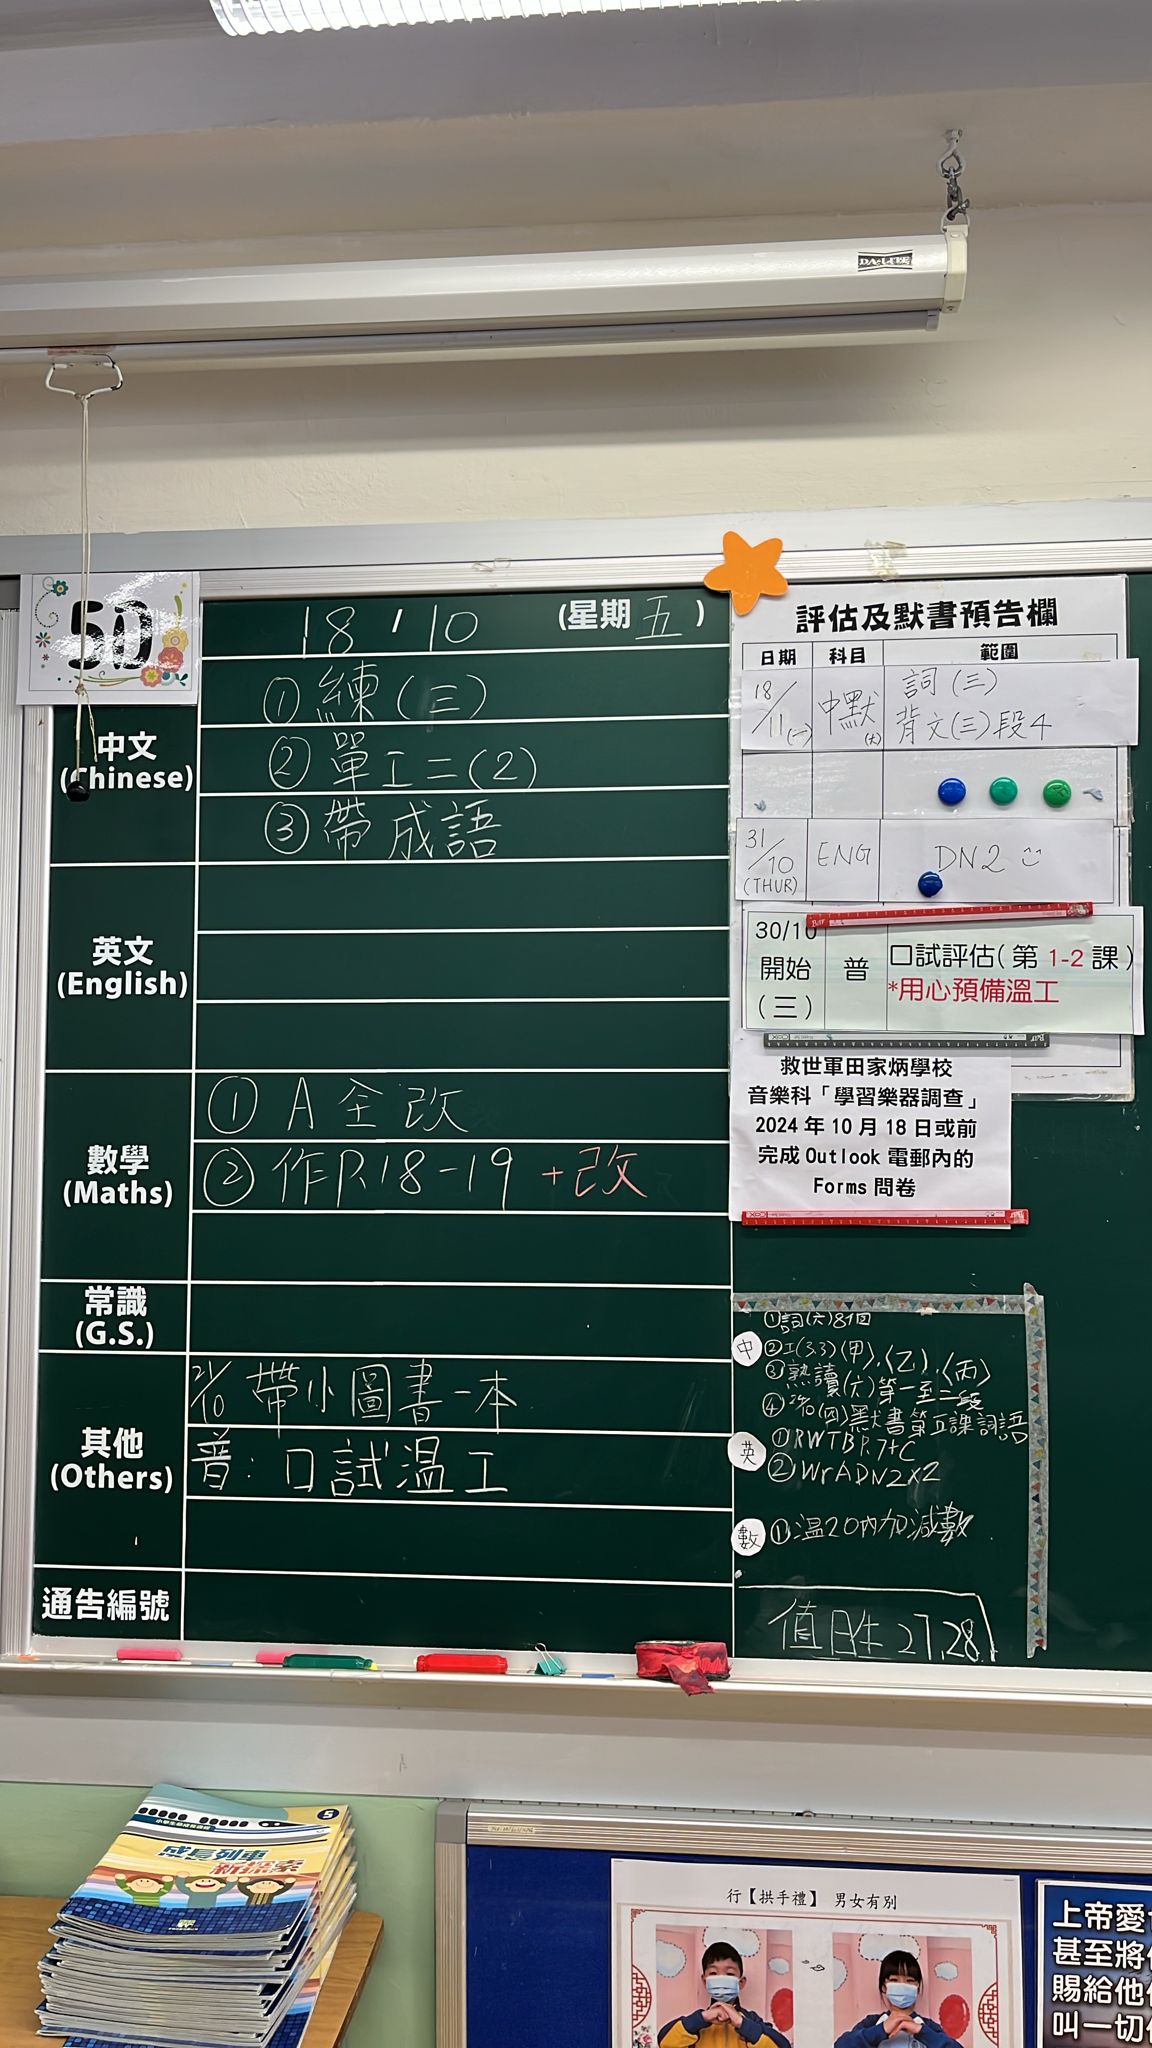 DA-LITE
5D
18 / 10 (星期五)
中文
(Chinese)
① 練(三)
② 單工二(2)
③ 帶成語
英文
(English)
數學
(Maths)
① A 全改
② 作P.18-19 +改
常識
(G.S.)
其他
(Others)
21/10 帶小圖書一本
普：口試溫工
通告編號
評估及默書預告欄
日期 科目 範圍
18/11(一) 中默(大) 詞(三)
背文(三)段4
31/10 (THUR) ENG DN2
30/10 開始 (三) 普 口試評估(第1-2課)
*用心預備溫工
救世軍田家炳學校
音樂科「學習樂器調查」
2024年10月18日或前
完成Outlook電郵內的
Forms問卷
中
①詞(六)8個
②工(3.3)〈甲〉、〈乙〉、〈丙〉
③熟讀(六)第一至二段
④ (四)默書第五課詞語
英
①RWTB P.7+C
②WrADN2x2
數
①溫20內加減數
值日生 27,28
5
成長列車
新探索
行【拱手禮】 男女有別
上帝愛
甚至將
賜給他
叫一切